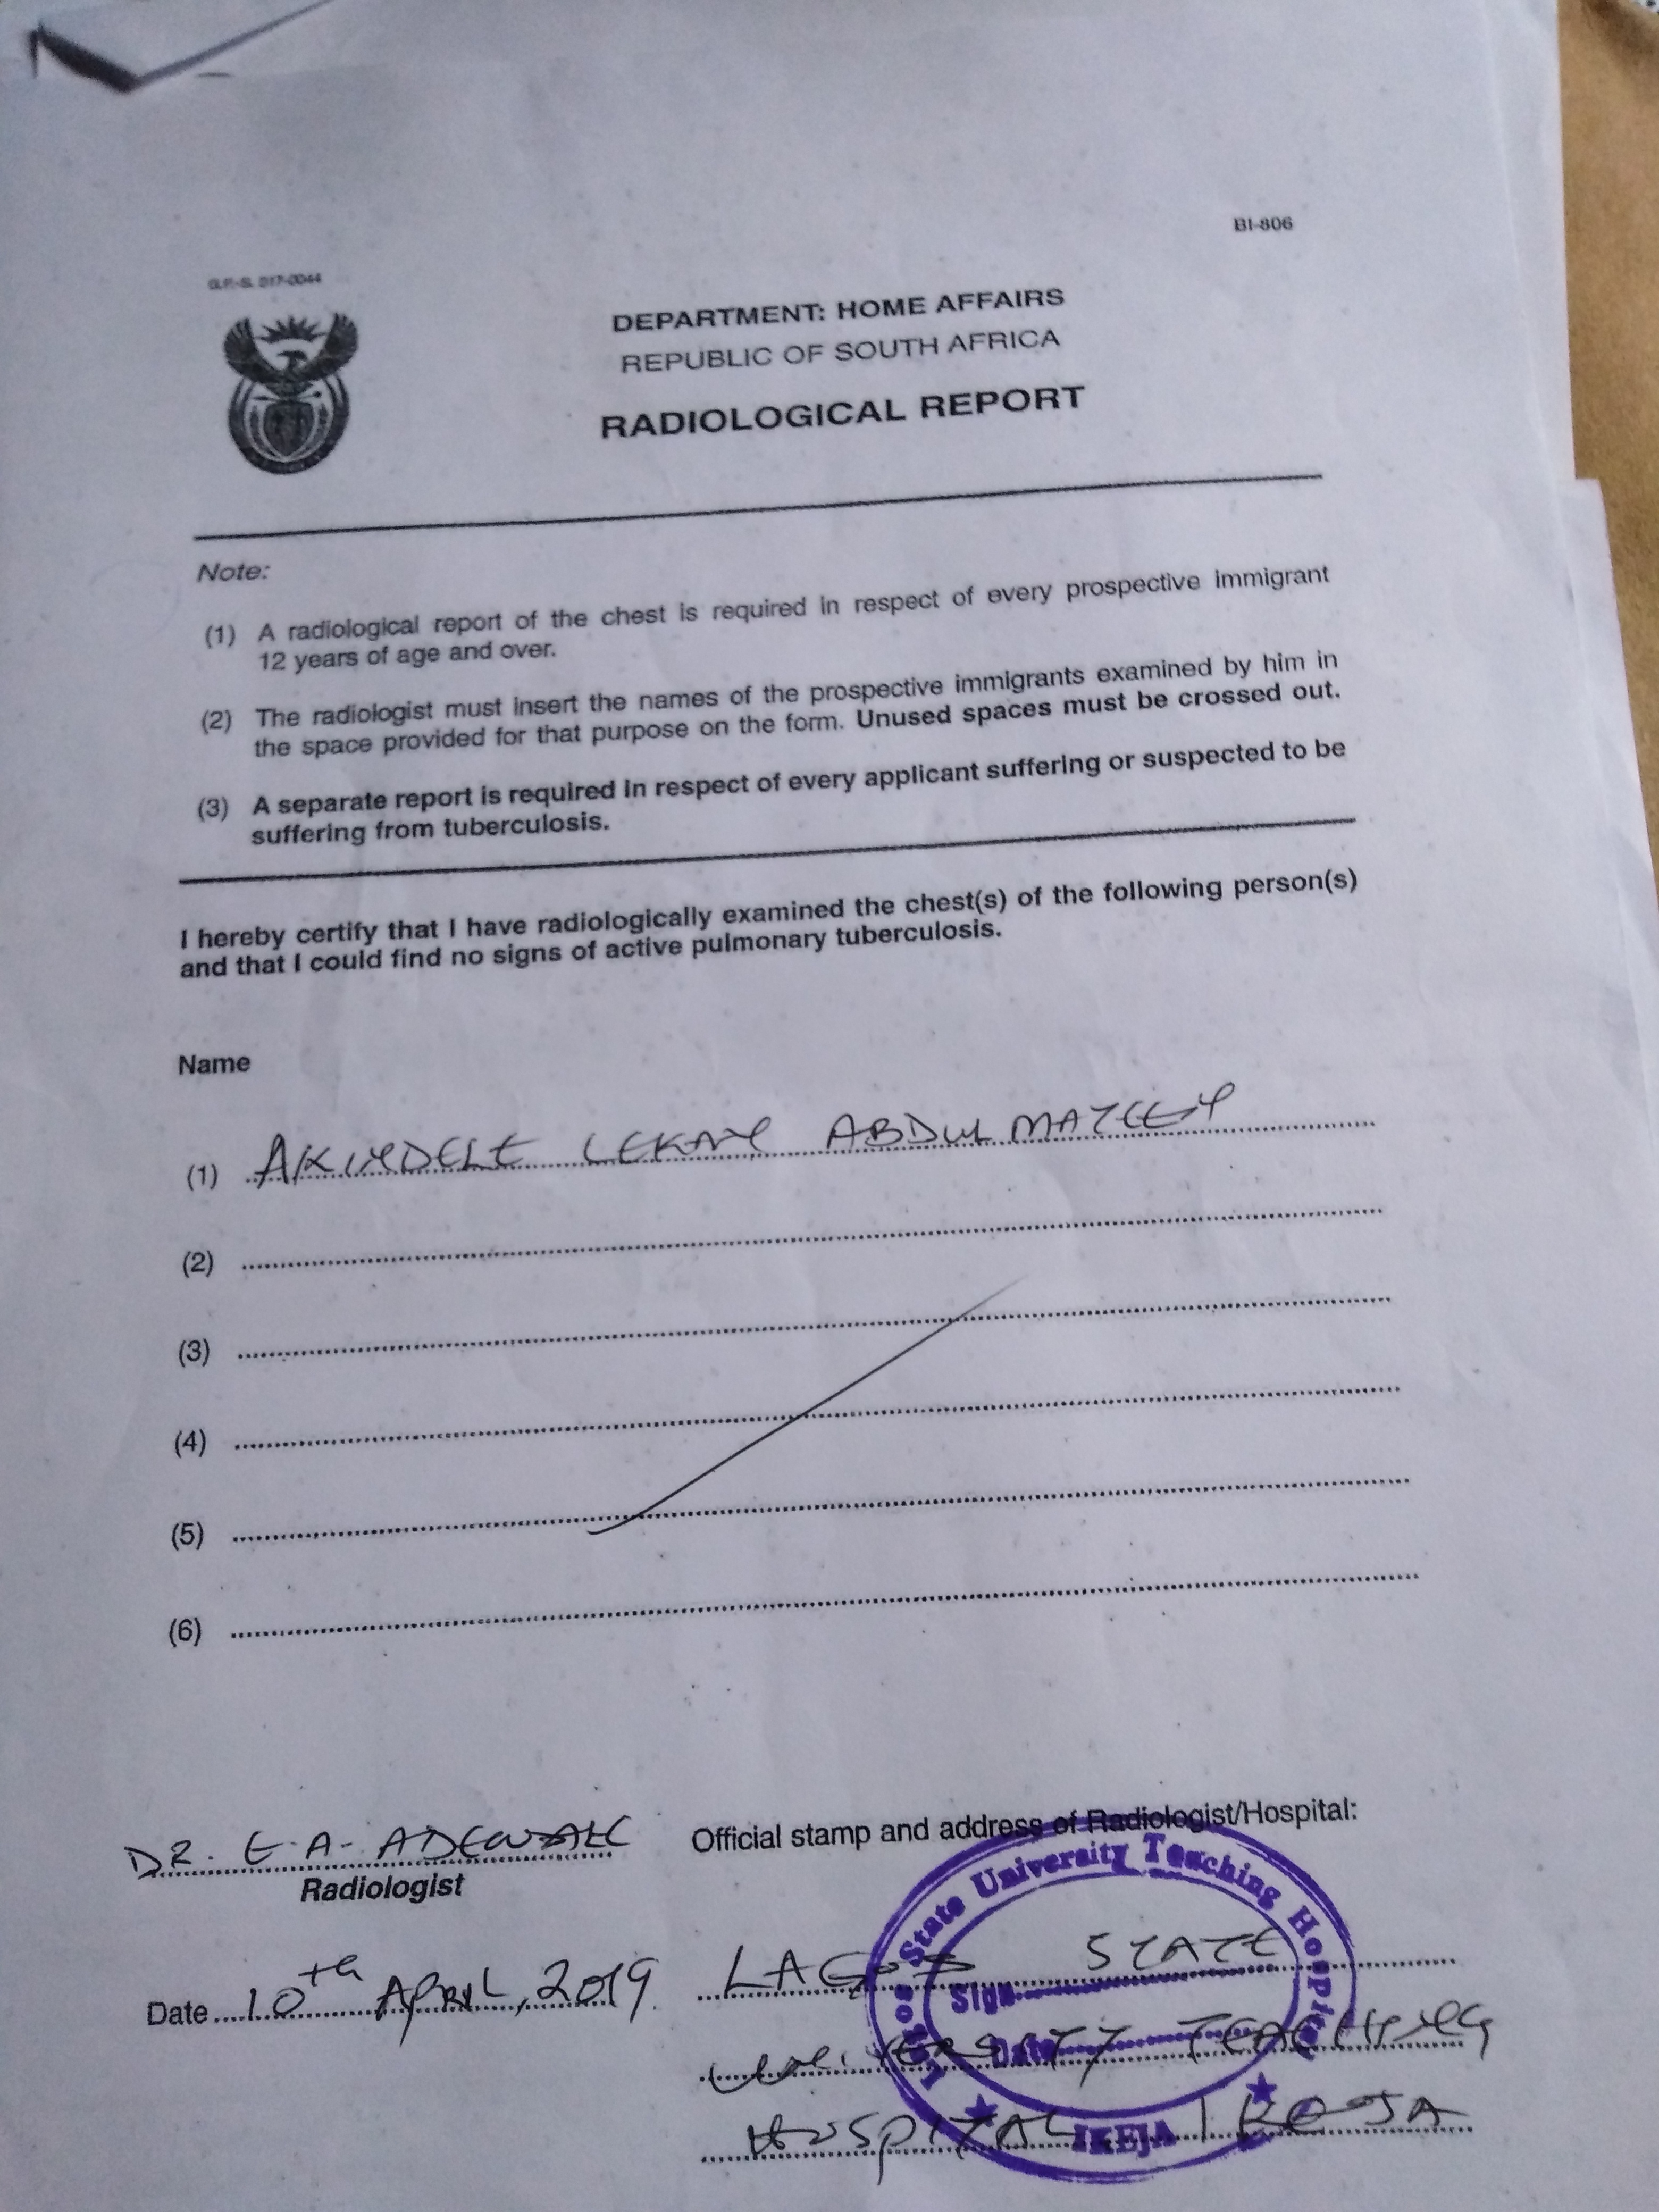 BI-806
G.P.-S. 017-0044
DEPARTMENT: HOME AFFAIRS
REPUBLIC OF SOUTH AFRICA
RADIOLOGICAL REPORT
Note:
(1) A radiological report of the chest is required in respect of every prospective immigrant
12 years of age and over.
(2) The radiologist must insert the names of the prospective immigrants examined by him in
the space provided for that purpose on the form. Unused spaces must be crossed out.
(3) A separate report is required in respect of every applicant suffering or suspected to be
suffering from tuberculosis.
I hereby certify that I have radiologically examined the chest(s) of the following person(s)
and that I could find no signs of active pulmonary tuberculosis.
Name
(1) AKINDELE LEKAN ABDUL MATEEN
(2)
(3)
(4)
(5)
(6)
DR. E. A. ADEWALE
Radiologist
Official stamp and address of Radiologist/Hospital:
Date 10th APRIL, 2019.
LAGOS STATE
UNIVERSITY TEACHING
HOSPITAL IKEJA
Lagos State University Teaching Hospital
Sign
Date
IKEJA